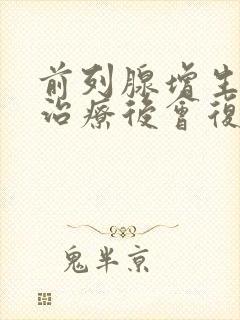 前列腺增生
治療後會復
鬼半京